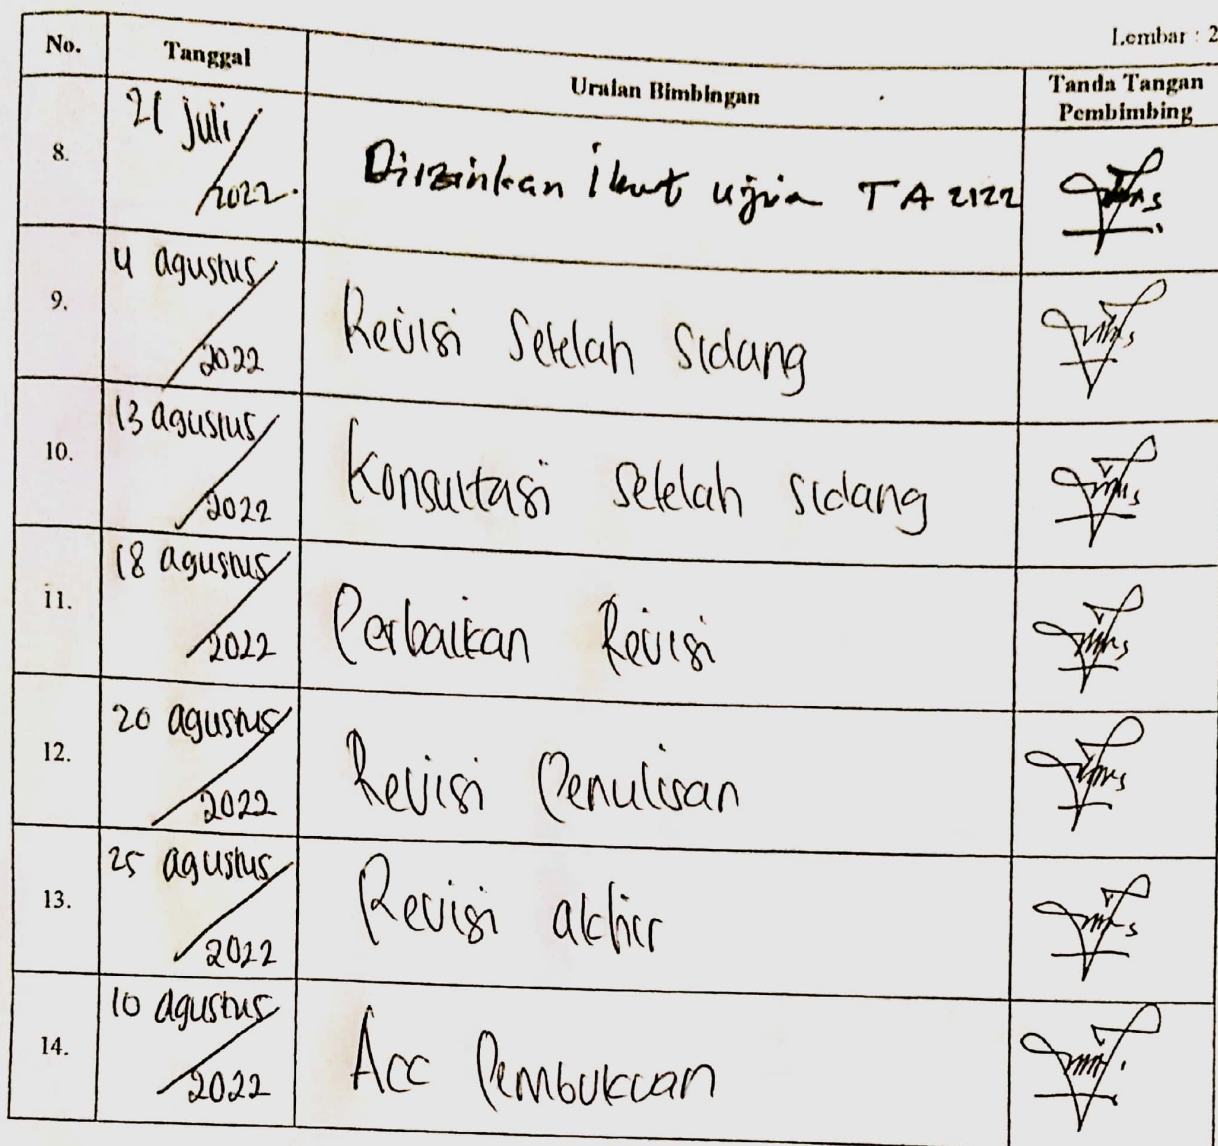 Lembar : 2
No. Tanggal Uraian Bimbingan Tanda Tangan
Pembimbing
8. 21 Juli / 2022. Diizinkan ikut ujian TA 2122
9. 4 agustus / 2022 Revisi Setelah Sidang
10. 13 agustus / 2022 Konsultasi Setelah sidang
11. 18 agustus / 2022 Perbaikan Revisi
12. 20 agustus / 2022 Revisi Penulisan
13. 25 agustus / 2022 Revisi akhir
14. 10 agustus / 2022 Acc Pembukuan